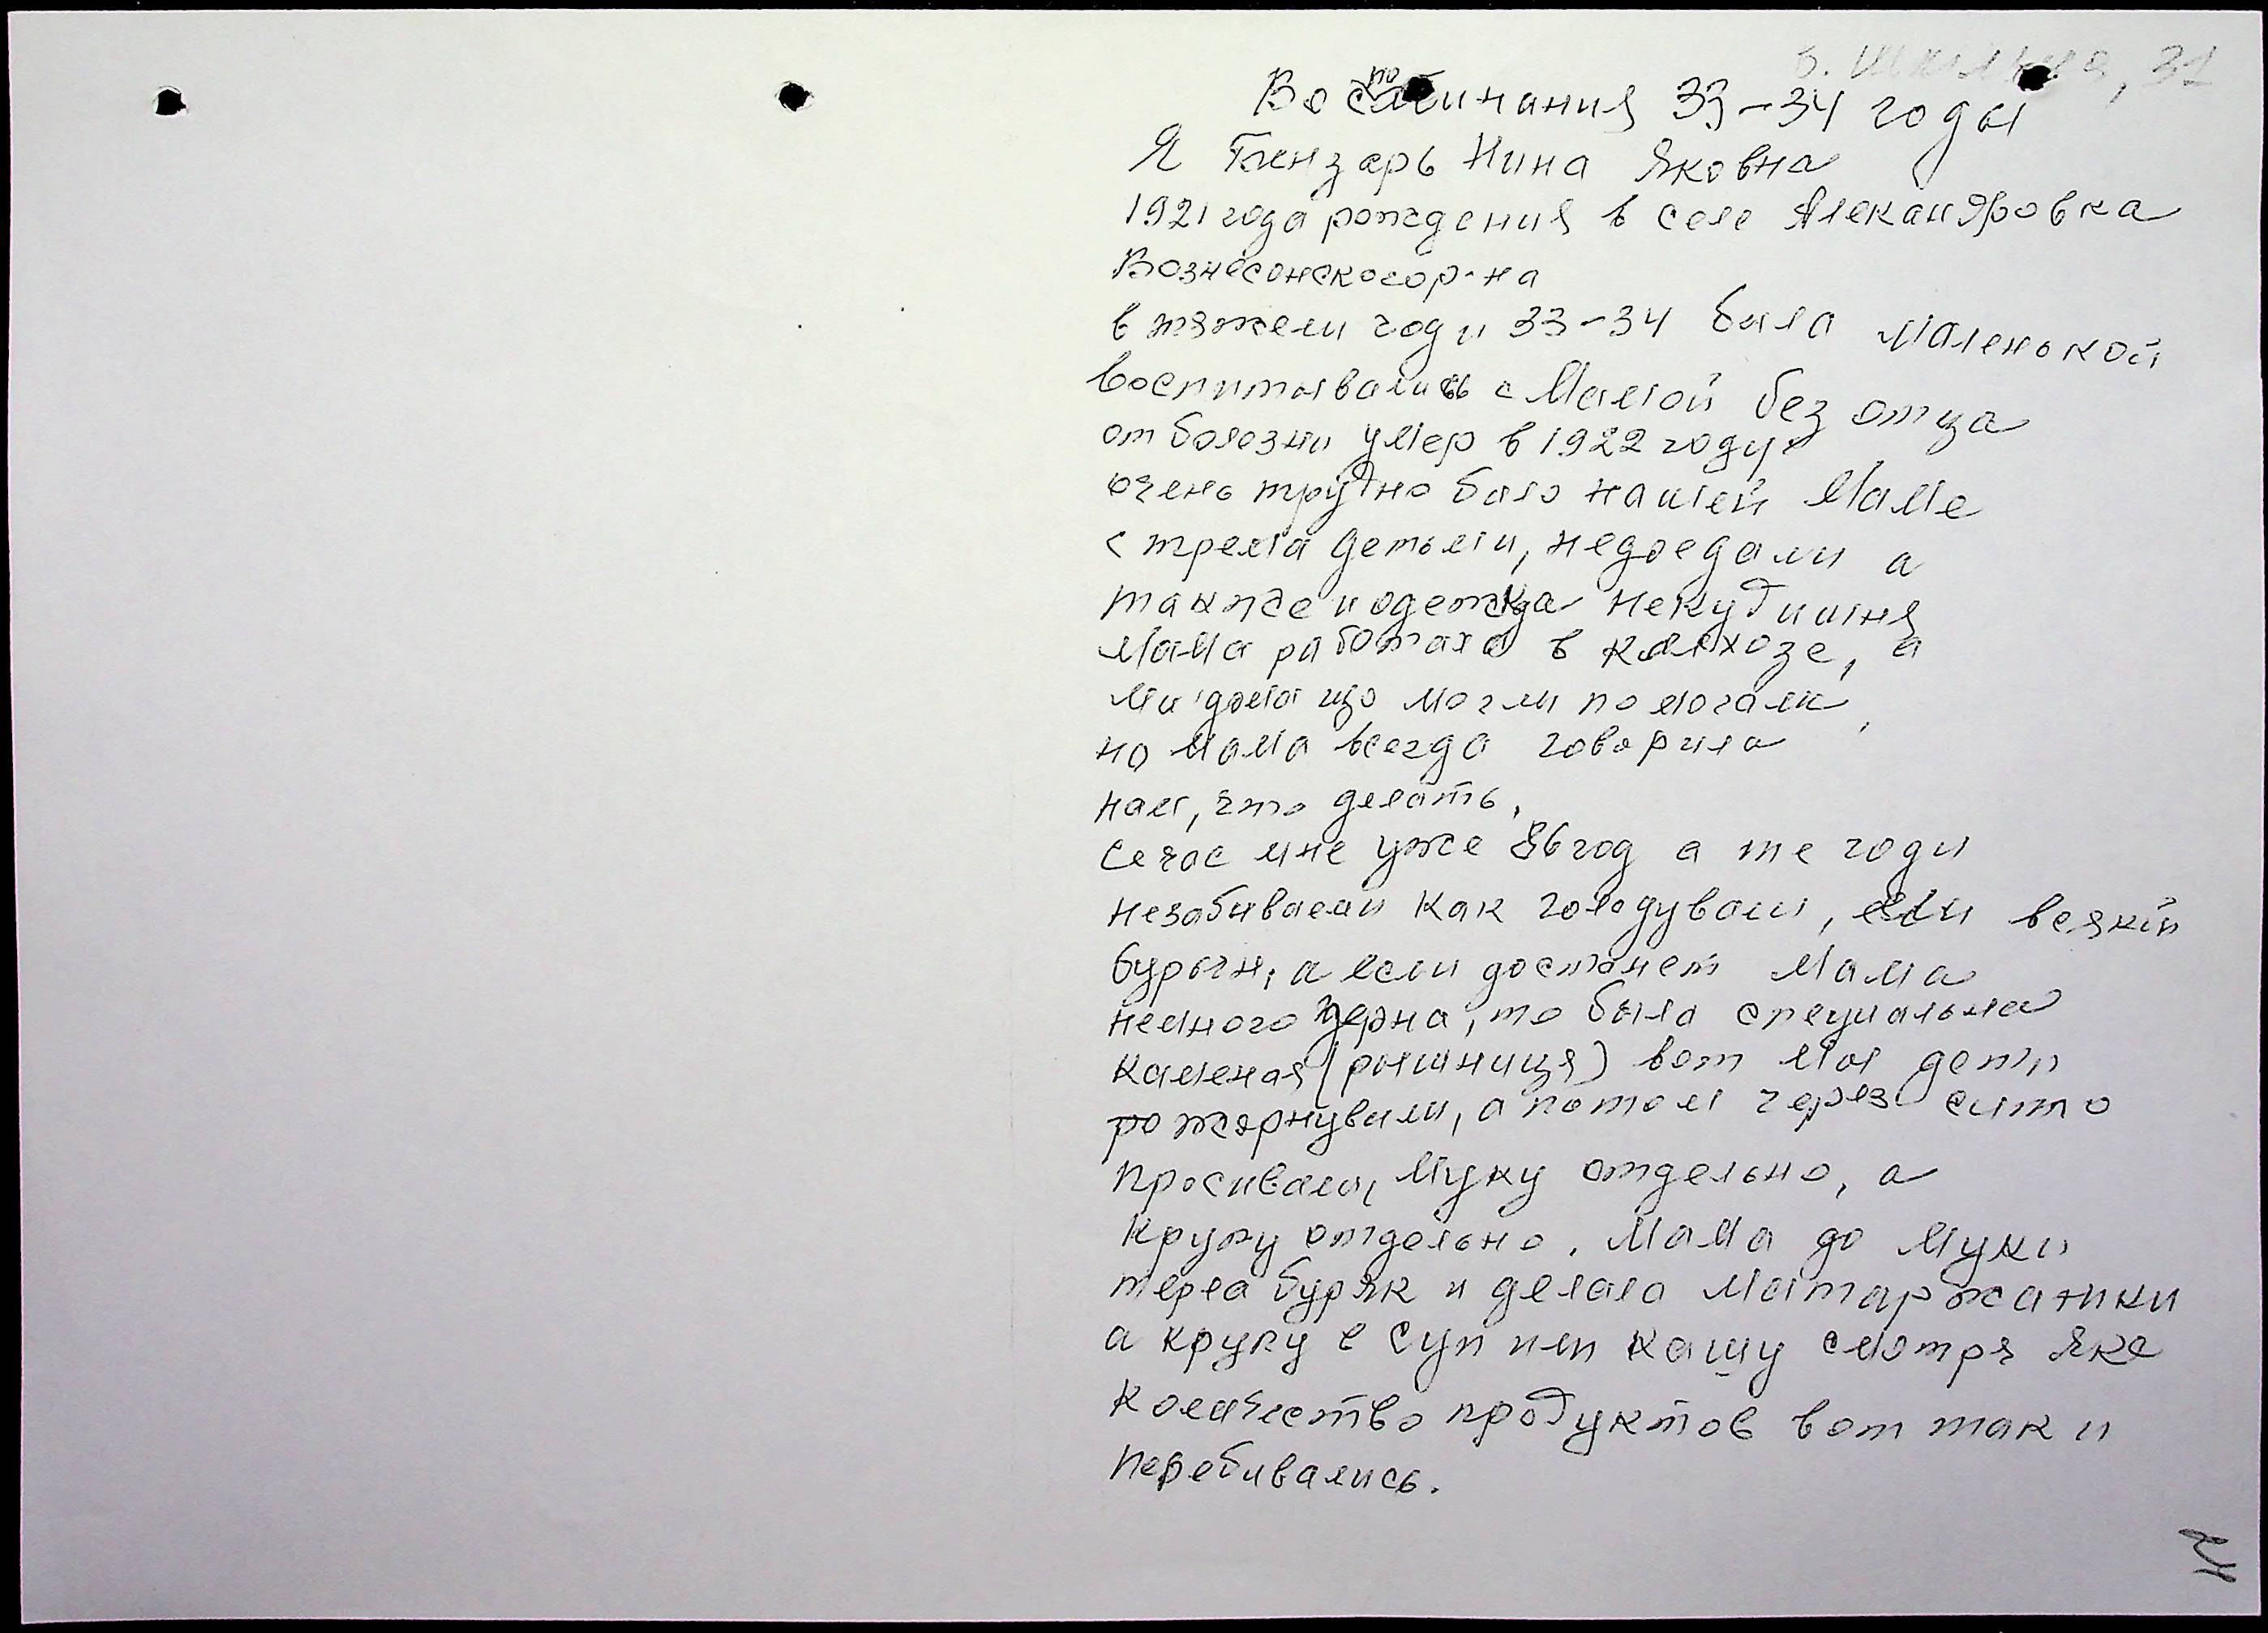 31
Воспоминания 33-34 годы
Я Нина Яковна
1921 года рождения в селе Александровка
Вознесенского р-на
в тяжели годи 33-34 била маленькой
воспитывались с Мамой без отца
от болезни умер в 1922 году
очень трудно било нашей Маме
с трема детьми, недоедали а
также и одежда
Мама работала в колхозе, а
ми дома що могли помогали,
но Мама всегда говорила
нам, что делать.
Сечас мне уже 86 год а те годи
незабиваеми как голодували, ели всякий
бурьян, а если достанет Мама
немного зерна, то была специальна
каменая (рышниця) вот мы дети
рожорнували, а потом через сито
просивали, Муку отдельно, а
крупу отдельно. Мама до Муки
терла буряк и делала Маторжаники
а крупу в суп или кашу смотря яке
количество продуктов вот так и
перебивались.